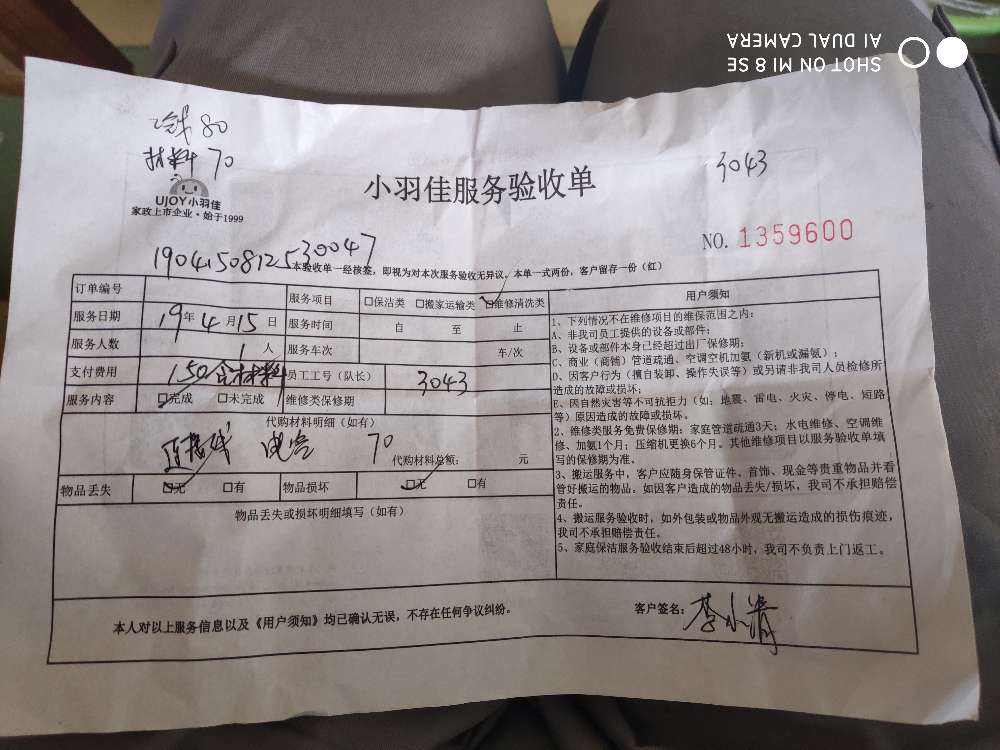 80
材料 70
UJOY小羽佳
家政上市企业·始于1999
小羽佳服务验收单
3043
NO. 1359600
190415081253 0047
本验收单一经核签,即视为对本次服务验收无异议,本单一式两份,客户留存一份(红)
订单编号
服务项目 □保洁类 □搬家运输类 □维修清洗类
服务日期 19年4月15日 服务时间 自 至 止
服务人数 1人 服务车次 车/次
支付费用 150含材料 员工工号(队长) 3043
服务内容 □完成 □未完成 维修类保修期
代购材料明细(如有)
连接线 70
代购材料总额: 元
物品丢失 □无 □有 物品损坏 □无 □有
物品丢失或损坏明细填写(如有)
用户须知
1、下列情况不在维修项目的维保范围之内:
A、非我司员工提供的设备或部件;
B、设备或部件本身已经超过出厂保修期;
C、商业(商铺)管道疏通、空调空机加氨(新机或漏氨);
D、因客户行为(擅自装卸、操作失误等)或另请非我司人员检修所
造成的故障或损坏;
E、因自然灾害等不可抗拒力(如:地震、雷电、火灾、停电、短路
等)原因造成的故障或损坏。
2、维修类服务免费保修期:家庭管道疏通3天;水电维修、空调维
修、加氨1个月;压缩机更换6个月。其他维修项目以服务验收单填
写的保修期为准。
3、搬运服务中,客户应随身保管证件、首饰、现金等贵重物品并看
管好搬运的物品。如因客户造成的物品丢失/损坏,我司不承担赔偿
责任。
4、搬运服务验收时,如外包装或物品外观无搬运造成的损伤痕迹,
我司不承担赔偿责任。
5、家庭保洁服务验收结束后超过48小时,我司不负责上门返工。
本人对以上服务信息以及《用户须知》均已确认无误,不存在任何争议纠纷。
客户签名: 李小清
SHOT ON MI 8 SE
AI DUAL CAMERA